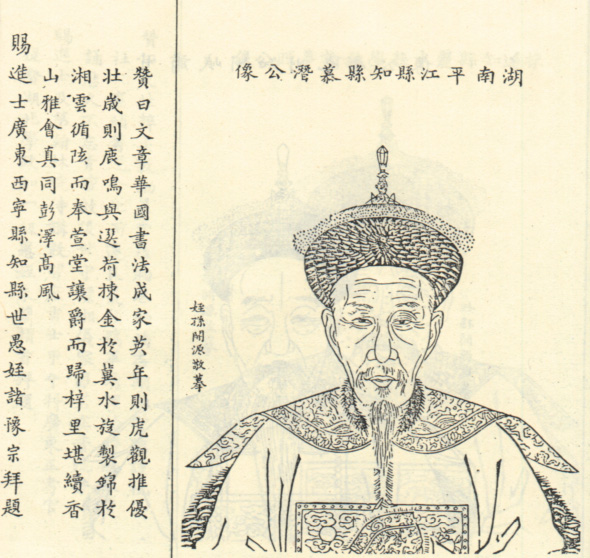 湖南平江縣知縣慕潛公像
姪孫開源敬摹
贊曰文章華國書法成家英年則虎觀推優
壯歲則鹿鳴與選荷揀金於冀水旋製錦於
湘雲循陔而奉萱堂讓爵而歸梓里堪續香
山雅會真同彭澤高風
賜進士廣東西寧縣知縣世愚姪諸豫宗拜題